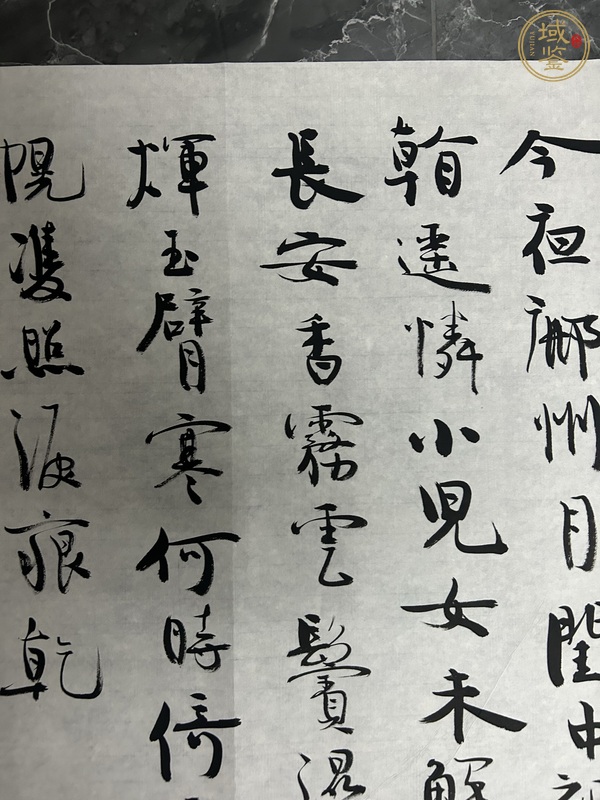 今夜鄜州月閨中
翰遥憐小兒女未解
長安香霧雲鬟濕
輝玉臂寒何時倚
幌雙照淚痕乾
域鑒
YUJIAN